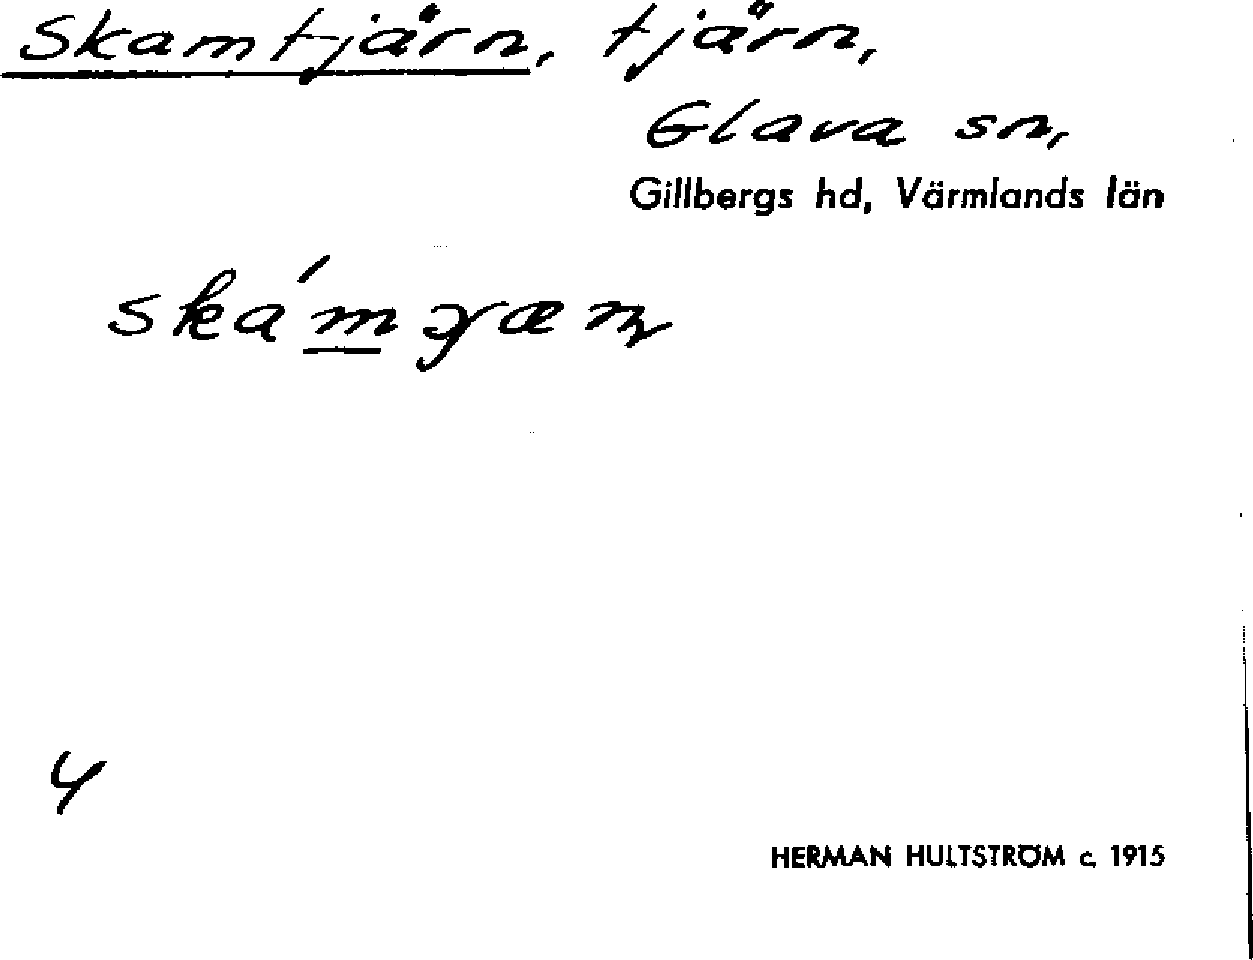 Skamtjärn, tjärn,
Glava sn,
Gillbergs hd, Värmlands län
4
HERMAN HULTSTRÖM c. 1915